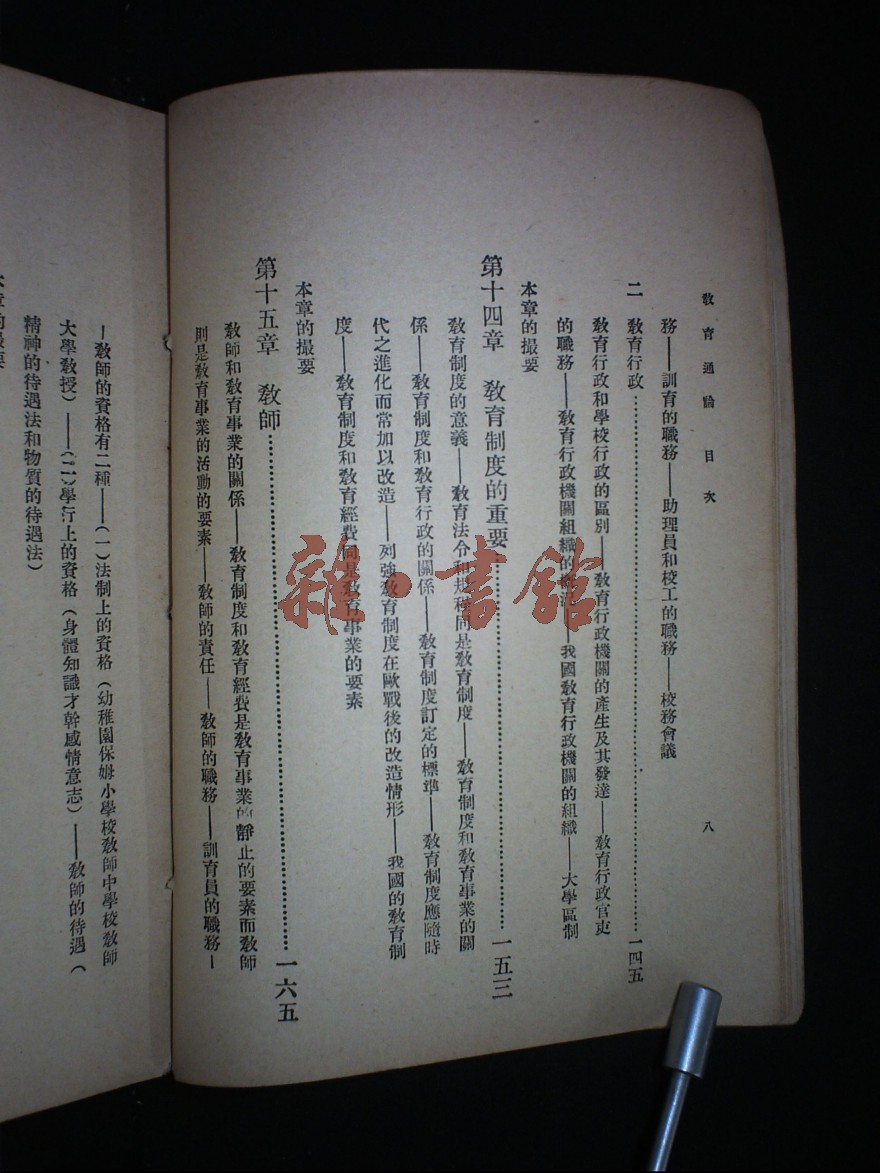 教育通論　目次　八
務——訓育的職務——助理員和校工的職務——校務會議
二　教育行政……一四五
教育行政和學校行政的區別——教育行政機關的產生及其發達——教育行政官吏
的職務——教育行政機關組織的——我國教育行政機關的組織——大學區制
本章的撮要
第十四章　教育制度的重要……一五三
教育制度的意義——教育法令和規程同是教育制度——教育制度和教育事業的關
係——教育制度和教育行政的關係——教育制度訂定的標準——教育制度應隨時
代之進化而常加以改造——列強教育制度在歐戰後的改造情形——我國的教育制
度——教育制度和教育經費同是教育事業的要素
本章的撮要
第十五章　教師……一六五
教師和教育事業的關係——教育制度和教育經費是教育事業的靜止的要素而教師
則是教育事業的活動的要素——教師的責任——教師的職務——訓育員的職務—
—教師的資格有二種——(一)法制上的資格(幼稚園保姆小學校教師中學校教師
大學教授)——(二)學行上的資格(身體知識才幹感情意志)——教師的待遇(
精神的待遇法和物質的待遇法)
本章的撮要
雜·書館